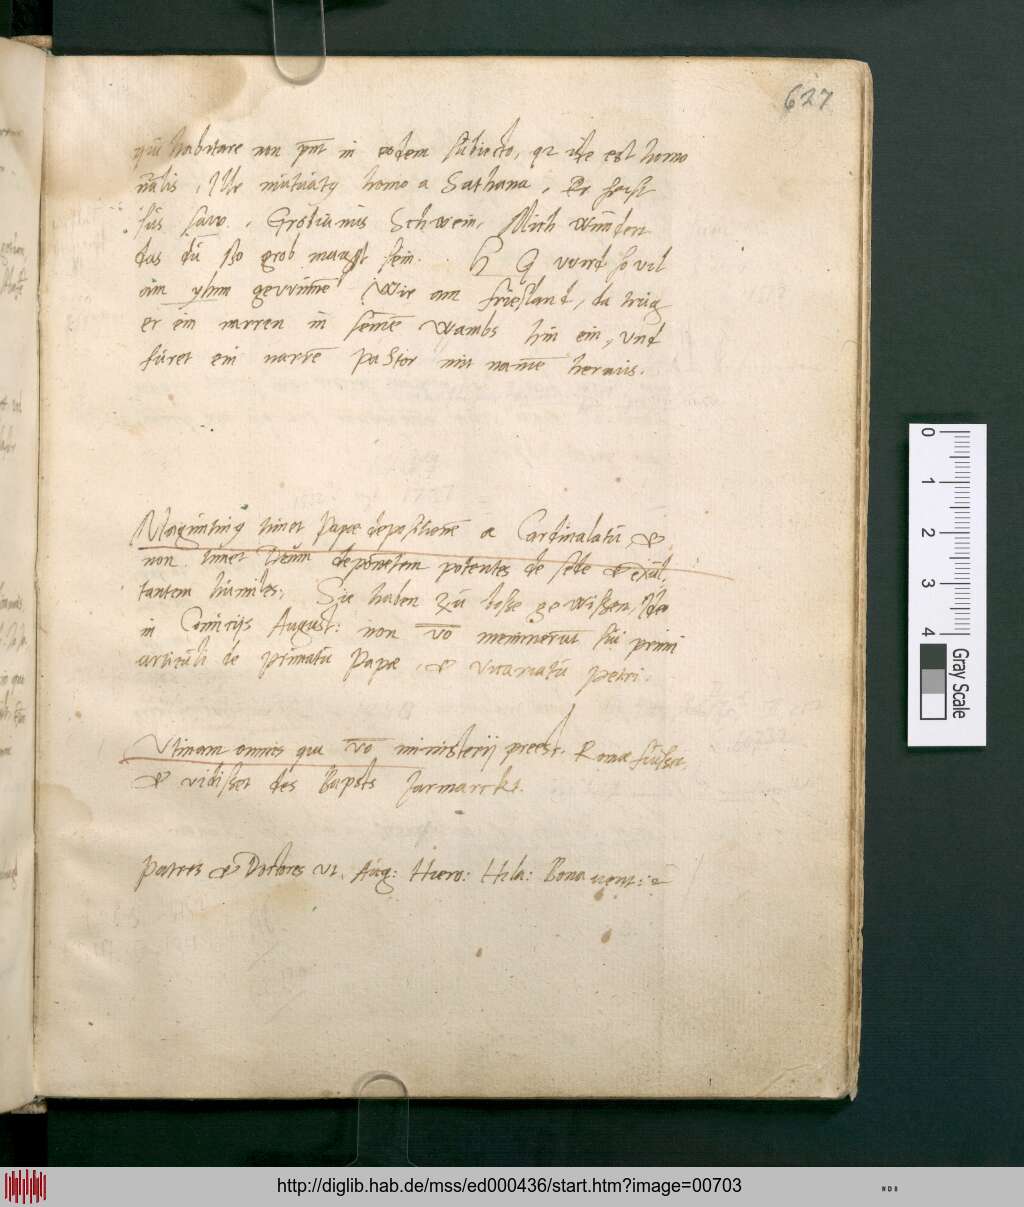 627
qui habitare non pnt in eodem subiecto, qz iste est homo
nalis, Ille mutuaty homo a Sathana, Er heist
sus saw. Grobianus Schwein, Mich wundert
das du sso grob magst sein. H G wird so vil
am yhm gewinne Wie am frießland, da trug
er ein narren in seine wambs hin ein, vnd
furet ein narre Pastor mit name heraus.
Mogunting timet Papae depositione a Cardinalatu, &
non timet Deum deponetem potentes de sede & exal
tantem humiles, Sie haben zu bosse gewissen, Ide
in Comitijs August: non vo meminerut sui primi
articuli de primatu Papae, & vicariatu Petri.
Vtinam omnis qui vo ministerij preest. Romae fuisset
& vidisset des Bapsts Jarmarckt.
Patres & Doctores vt. Aug: Hiero: Hila: Bonauent:
0 1 2 3 4
Gray Scale
http://diglib.hab.de/mss/ed000436/start.htm?image=00703